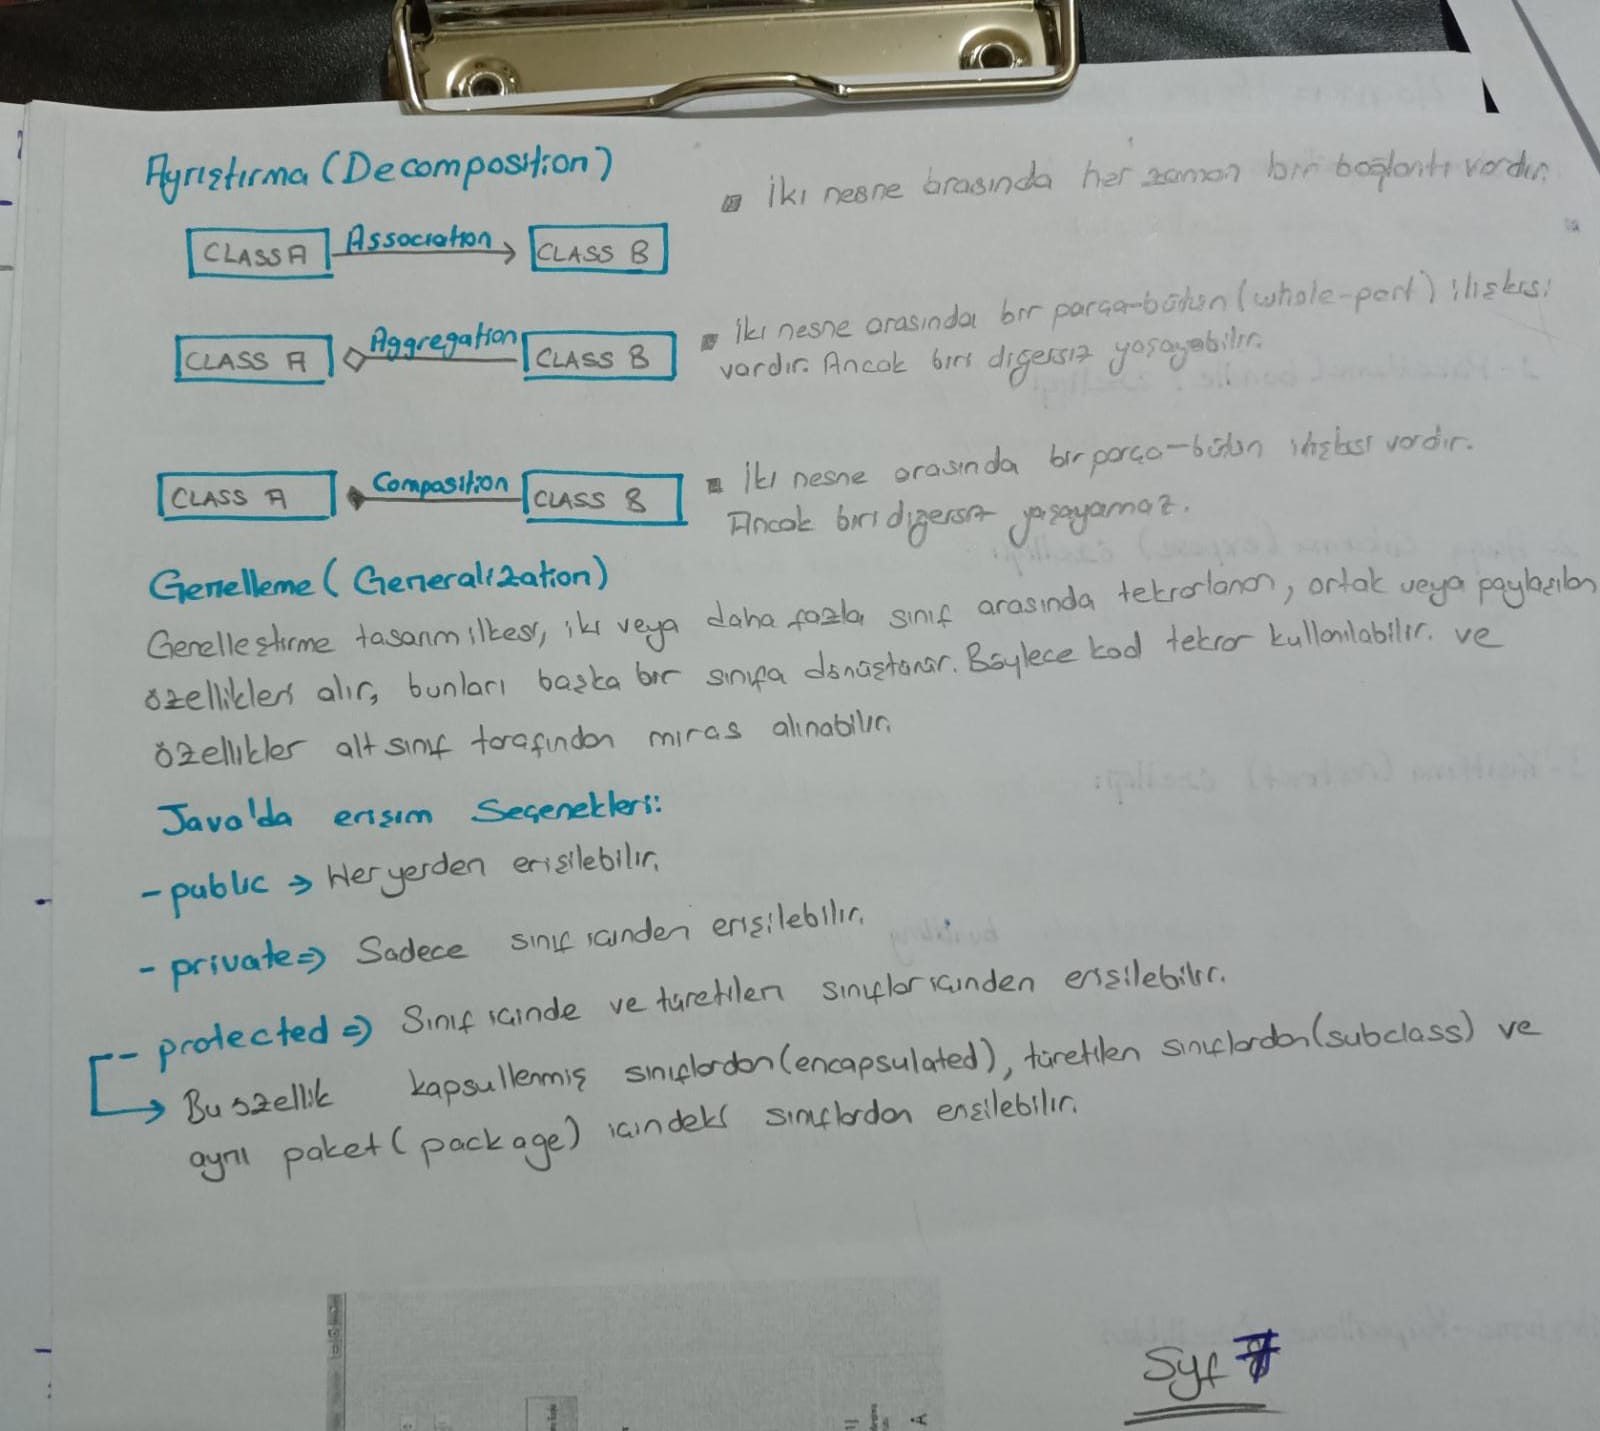 Ayrıştırma (Decomposition)
CLASS A Association CLASS B
▪ İki nesne arasında her zaman bir bağlantı vardır.
CLASS A Aggregation CLASS B
▪ İki nesne arasında bir parça-bütün (whole-part) ilişkisi
vardır. Ancak biri diğersiz yaşayabilir.
CLASS A Composition CLASS B
▪ İki nesne arasında bir parça-bütün ilişkisi vardır.
Ancak biri diğersiz yaşayamaz.
Genelleme (Generalization)
Genelleştirme tasarım ilkesi, iki veya daha fazla sınıf arasında tekrarlanan, ortak veya paylaşılan
özellikleri alır, bunları başka bir sınıfa dönüştürür. Böylece kod tekrar kullanılabilir. ve
özellikler alt sınıf tarafından miras alınabilir.
Java'da erişim Seçenekleri:
- public → Her yerden erişilebilir.
- private ⇒ Sadece sınıf içinden erişilebilir.
- protected ⇒ Sınıf içinde ve türetilen sınıflar içinden erişilebilir.
→ Bu özellik kapsullenmiş sınıflardan (encapsulated), türetilen sınıflardan (subclass) ve
aynı paket (package) içindeki sınıflardan erişilebilir.
Syf 7